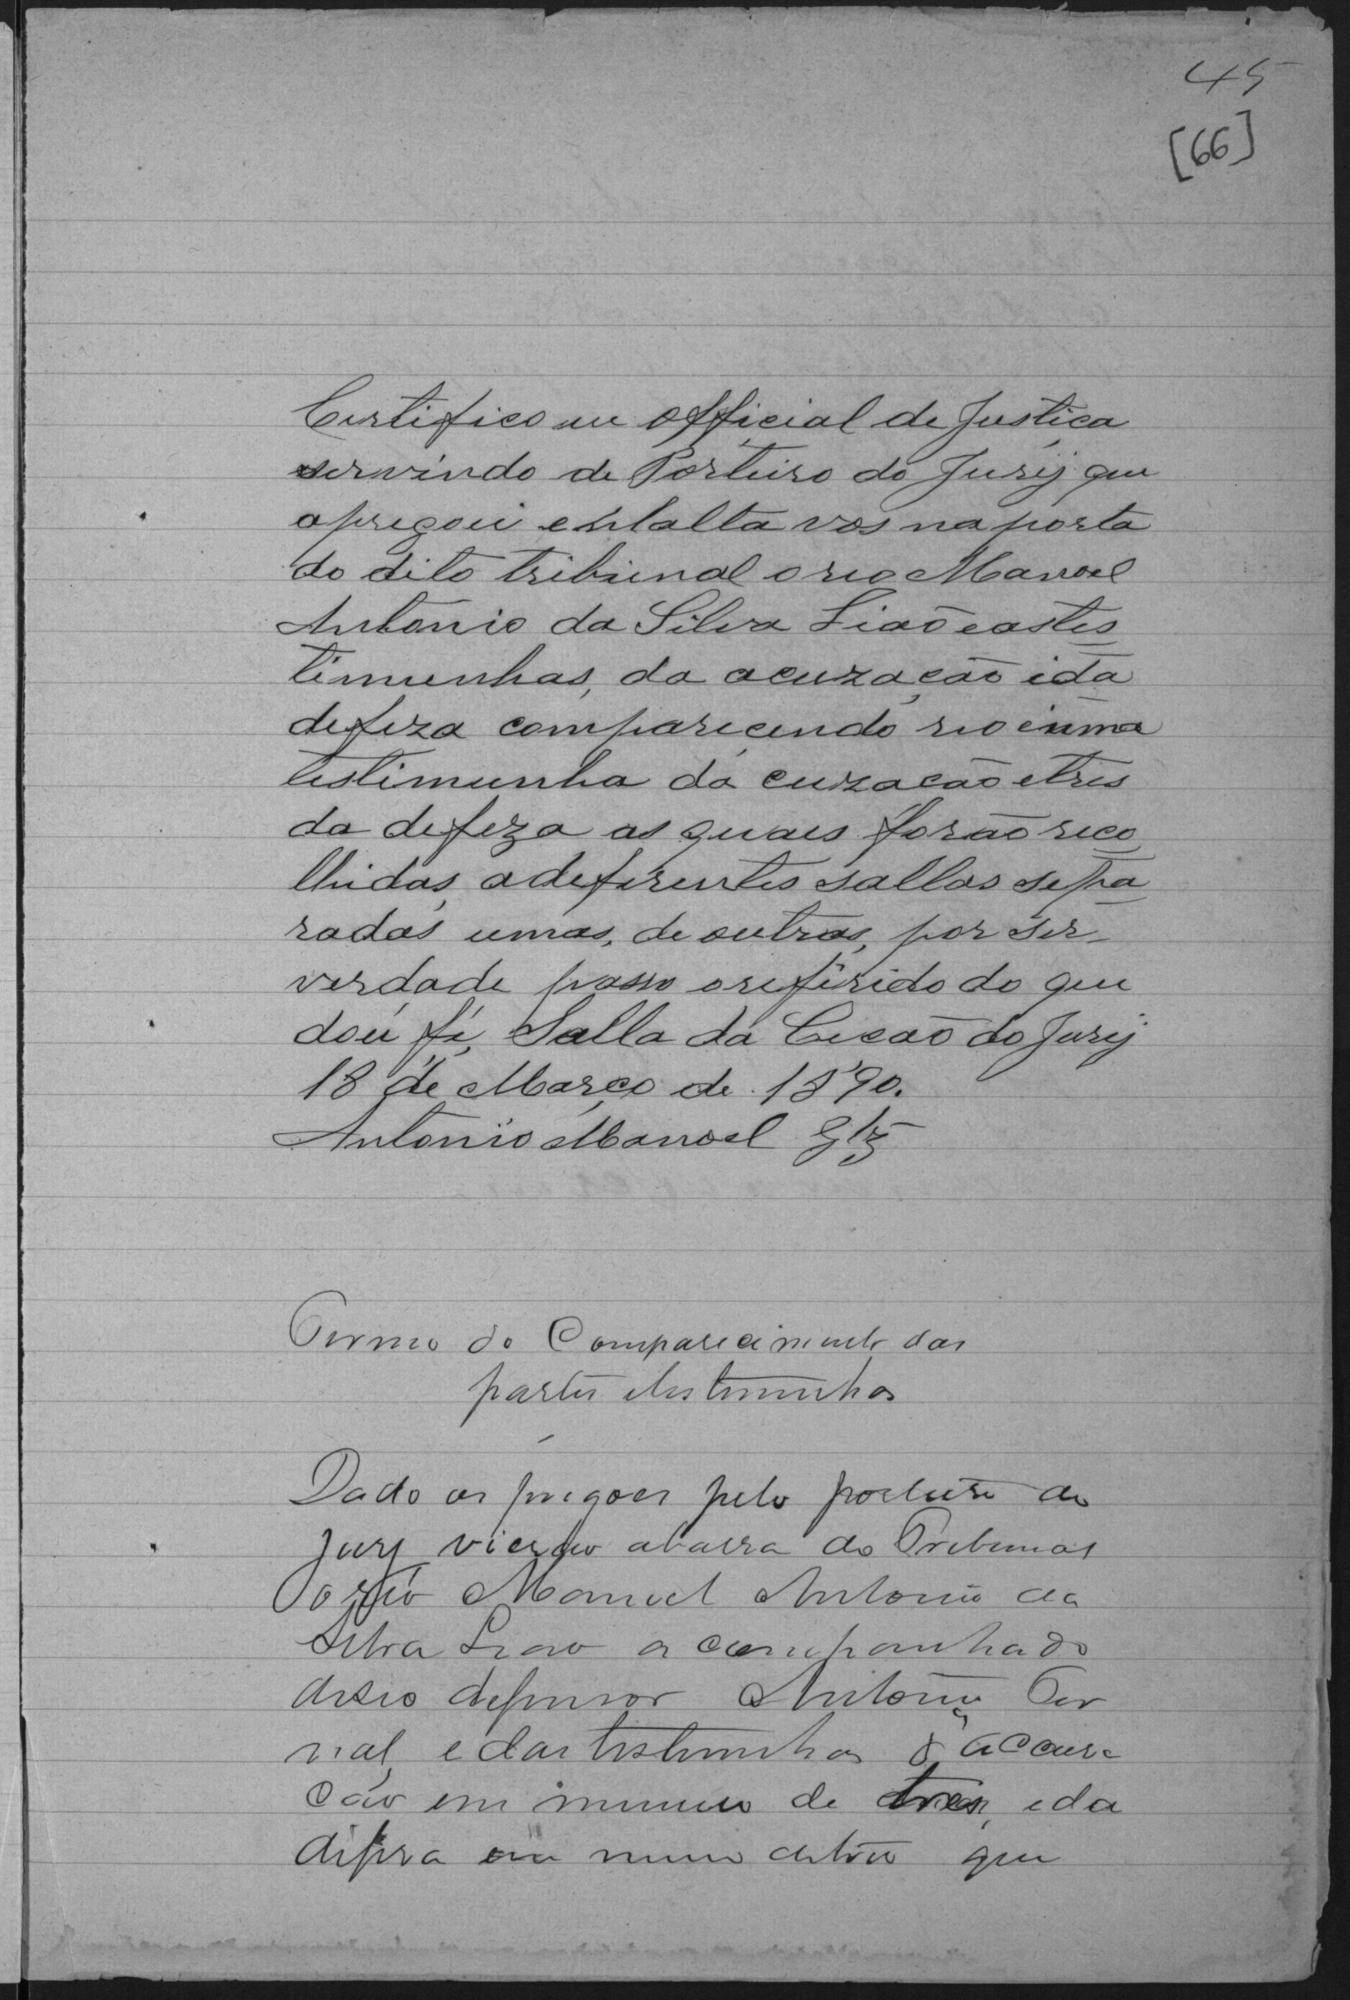 45
[66]
Certifico eu official de Justiça
servindo de Porteiro do Jurij que
apregoei en alta vos na porta
do dito tribunal o reo Manoel
Antonio da Silva Lião e as tes
timunhas, da acuzação i da
defeza comparicendo reo i uma
testimunha da cuzacão e tres
da defeza as quaes forão reco
lhidas, a deferentes sallas sepa
radas umas, de outras, por ser
verdade passo o referido do que
dou fé, Salla da Cecão do Jurij
18 de Março de 1890.
Antonio Manoel Glz
Termo do Comparecimento das
partes e testimunhas
Dado os pregoes pelo porteiro do
Jury vierão a barra do Tribunal
o réo Manoel Antonio da
Silva Leao acompanhado
de seo defensor Antonio Ter
nal, e das testemunhas d'accusa
cão em numero de tres, e da
difesa em numero de tres que